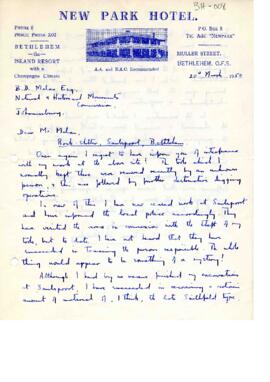 BH-008
NEW PARK HOTEL.
PHONE 8
PUBLIC PHONE 202
BETHLEHEM
the
INLAND RESORT
with a
Champagne Climate
A.A. and R.A.C. Recommended
P.O. Box 8
Tel. Add. "NEWPARK"
MULLER STREET,
BETHLEHEM, O.F.S.
20th March
B.D. Malan Esq.
Natural & Historical Monuments
Commission,
Johannesburg.
Dear Mr Malan,
Rock shelter, Saulspoort, Bethlehem
Once again I regret to have to inform you of interference
with my work at the above site! The tools which I
normally kept there were removed recently by an unknown
person, & this was followed by further destructive digging
operations.
In view of this I have now ceased work at Saulspoort
and have informed the local police accordingly. They
have visited the area in connexion with the theft of my
tools, but to date I have not heard that they have
succeeded in tracing the person responsible. The whole
thing would appear to be something of a mystery!
Although I had by no means finished my excavations
at Saulspoort, I have succeeded in recovering a certain
amount of material of, I think, the late Smithfield type.